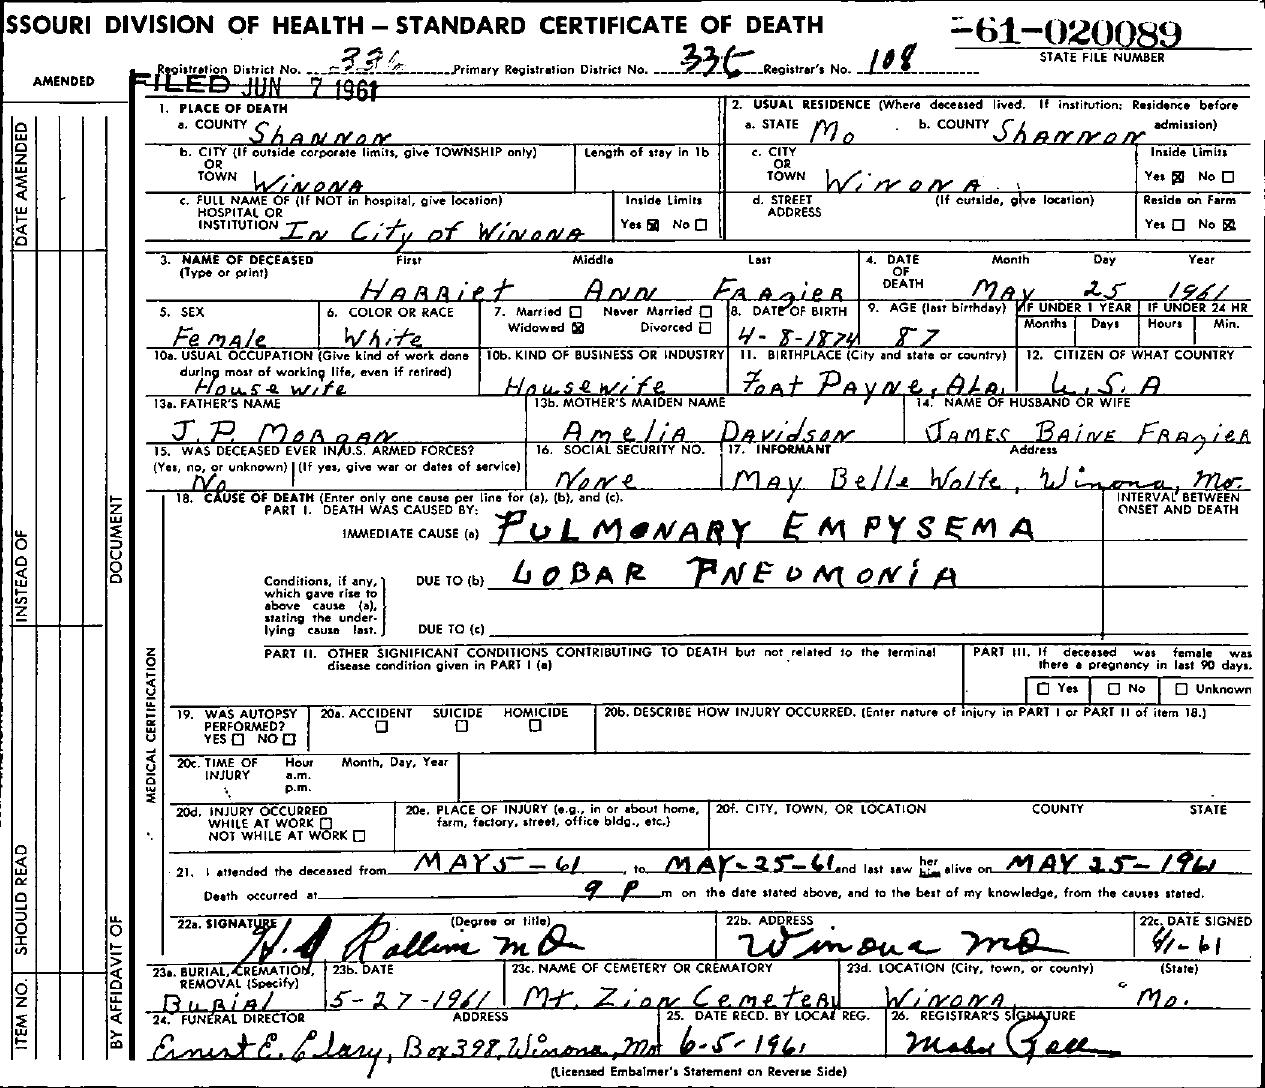 SSOURI DIVISION OF HEALTH — STANDARD CERTIFICATE OF DEATH
-61-020089
STATE FILE NUMBER
AMENDED
Registration District No. 336 Primary Registration District No. 335 Registrar's No. 108
FILED JUN 7 1961
1. PLACE OF DEATH
a. COUNTY Shannon
2. USUAL RESIDENCE (Where deceased lived. If institution: Residence before admission)
a. STATE Mo b. COUNTY Shannon
b. CITY (If outside corporate limits, give TOWNSHIP only) OR TOWN Winona
Length of stay in 1b
c. CITY OR TOWN Winona
Inside Limits
Yes ☒ No ☐
c. FULL NAME OF (If NOT in hospital, give location) HOSPITAL OR INSTITUTION In City of Winona
Inside Limits
Yes ☒ No ☐
d. STREET ADDRESS (If outside, give location)
Reside on Farm
Yes ☐ No ☒
3. NAME OF DECEASED (Type or print) First Middle Last
Harriet Ann Frazier
4. DATE OF DEATH Month Day Year
May 25 1961
5. SEX
Female
6. COLOR OR RACE
White
7. Married ☐ Never Married ☐
Widowed ☒ Divorced ☐
8. DATE OF BIRTH
4-8-1874
9. AGE (last birthday)
87
IF UNDER 1 YEAR
Months Days
IF UNDER 24 HR
Hours Min.
10a. USUAL OCCUPATION (Give kind of work done during most of working life, even if retired)
Housewife
10b. KIND OF BUSINESS OR INDUSTRY
Housewife
11. BIRTHPLACE (City and state or country)
Fort Payne, Ala.
12. CITIZEN OF WHAT COUNTRY
U.S.A
13a. FATHER'S NAME
J.P. Morgan
13b. MOTHER'S MAIDEN NAME
Amelia Davidson
14. NAME OF HUSBAND OR WIFE
James Baine Frazier
15. WAS DECEASED EVER IN U.S. ARMED FORCES?
(Yes, no, or unknown) (If yes, give war or dates of service)
No
16. SOCIAL SECURITY NO.
None
17. INFORMANT Address
May Belle Wolfe, Winona, Mo.
18. CAUSE OF DEATH (Enter only one cause per line for (a), (b), and (c).
INTERVAL BETWEEN ONSET AND DEATH
PART I. DEATH WAS CAUSED BY:
IMMEDIATE CAUSE (a) PULMONARY EMPYSEMA
Conditions, if any, which gave rise to above cause (a), stating the underlying cause last.
DUE TO (b) LOBAR PNEUMONIA
DUE TO (c)
PART II. OTHER SIGNIFICANT CONDITIONS CONTRIBUTING TO DEATH but not related to the terminal disease condition given in PART I (a)
PART III. If deceased was female was there a pregnancy in last 90 days.
☐ Yes ☐ No ☐ Unknown
19. WAS AUTOPSY PERFORMED?
YES ☐ NO ☐
20a. ACCIDENT SUICIDE HOMICIDE
☐ ☐ ☐
20b. DESCRIBE HOW INJURY OCCURRED. (Enter nature of injury in PART I or PART II of item 18.)
20c. TIME OF INJURY Hour a.m. p.m. Month, Day, Year
20d. INJURY OCCURRED
WHILE AT WORK ☐
NOT WHILE AT WORK ☐
20e. PLACE OF INJURY (e.g., in or about home, farm, factory, street, office bldg., etc.)
20f. CITY, TOWN, OR LOCATION COUNTY STATE
21. I attended the deceased from MAY 5-61, to MAY-25-61 and last saw her him alive on MAY 25-1961
Death occurred at 9 P m on the date stated above, and to the best of my knowledge, from the causes stated.
22a. SIGNATURE (Degree or title)
Rollins MD
22b. ADDRESS
Winona MO
22c. DATE SIGNED
6/1-61
23a. BURIAL, CREMATION, REMOVAL (Specify)
Burial
23b. DATE
5-27-1961
23c. NAME OF CEMETERY OR CREMATORY
Mt. Zion Cemetery
23d. LOCATION (City, town, or county) (State)
Winona Mo.
24. FUNERAL DIRECTOR ADDRESS
Ernest E. Clary, Box 398, Winona, Mo
25. DATE RECD. BY LOCAL REG.
6-5-1961
26. REGISTRAR'S SIGNATURE
(Licensed Embalmer's Statement on Reverse Side)
DATE AMENDED
INSTEAD OF
DOCUMENT
MEDICAL CERTIFICATION
SHOULD READ
ITEM NO.
BY AFFIDAVIT OF